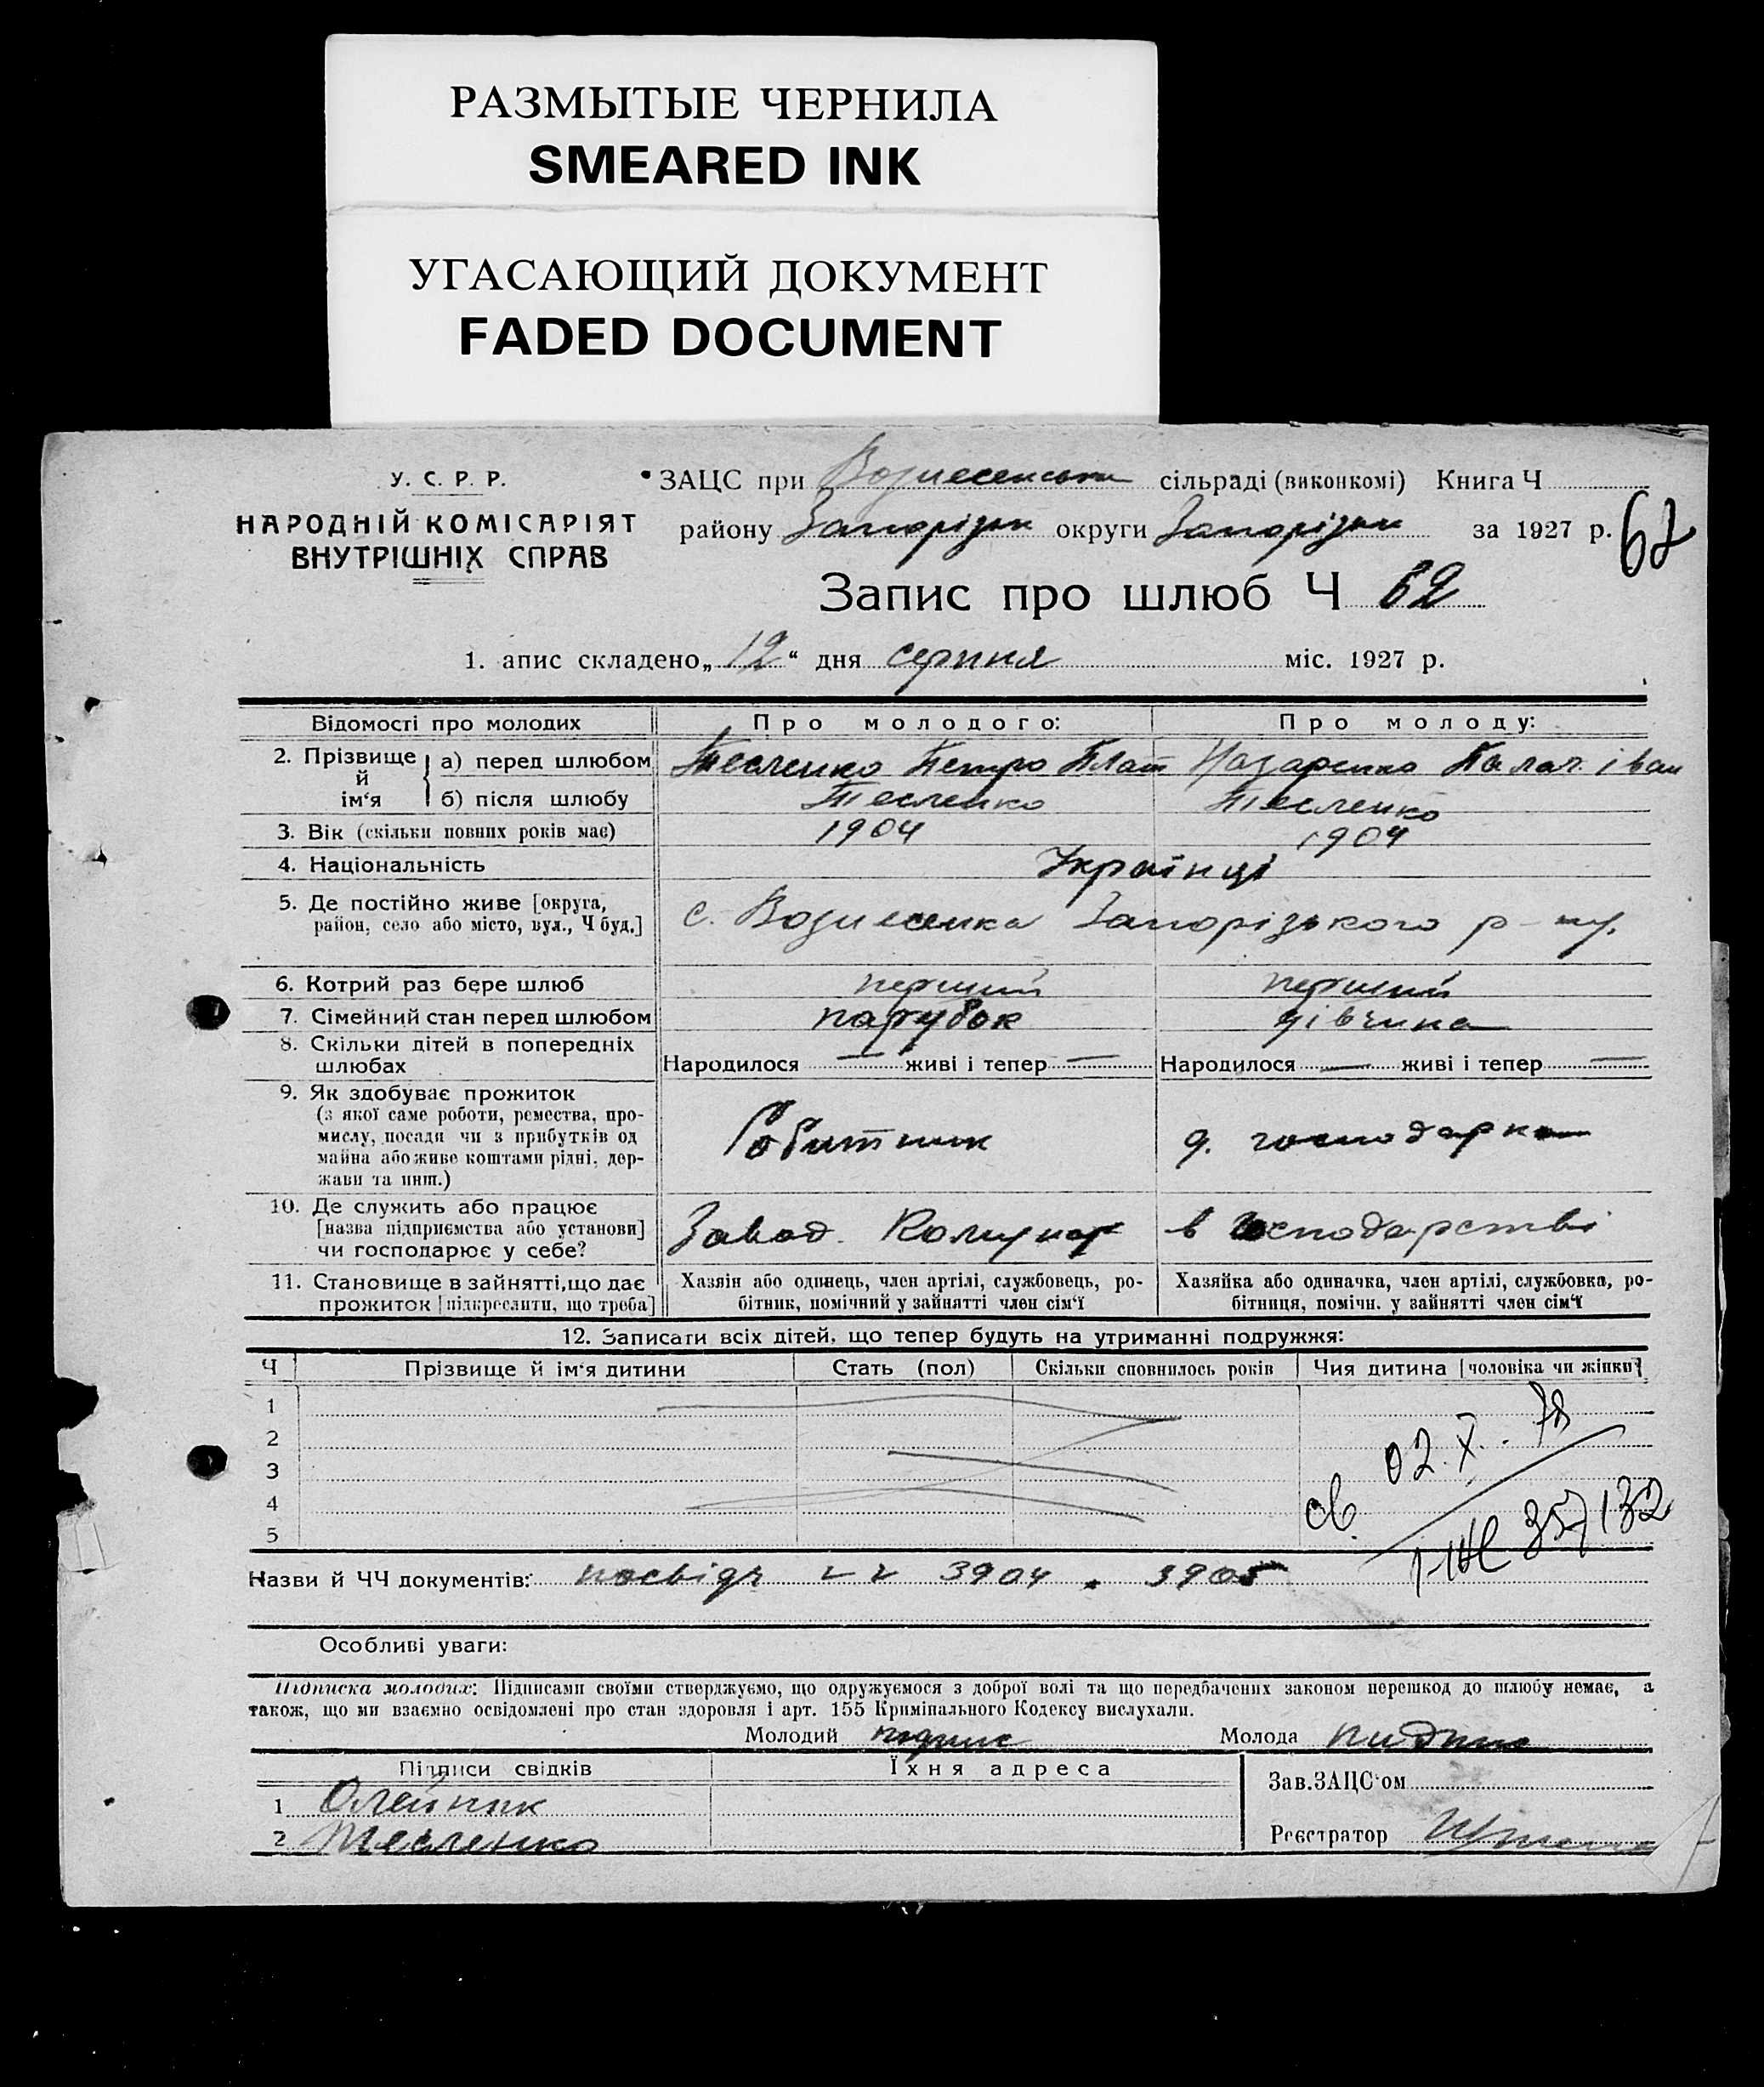 РАЗМЫТЫЕ ЧЕРНИЛА
SMEARED INK
УГАСАЮЩИЙ ДОКУМЕНТ
FADED DOCUMENT
У. С. Р. Р.
НАРОДНІЙ КОМІСАРІЯТ
ВНУТРІШНІХ СПРАВ
ЗАЦС при Вознесенськ сільраді (виконкомі) Книга Ч
району Запорізьк округи Запорізьк за 1927 р. 62
Запис про шлюб Ч 62
1. апис складено „12“ дня серпня міс. 1927 р.
Відомості про молодих Про молодого: Про молоду:
2. Прізвище й ім‘я а) перед шлюбом Тесленко Петро Плат Назаренко Палаг. іван
б) після шлюбу Тесленко Тесленко
3. Вік (скільки повних років має) 1904 1904
4. Національність Українці
5. Де постійно живе [округа, район, село або місто, вул., Ч буд.] с. Вознесенка Запорізького р-ну.
6. Котрий раз бере шлюб перший перший
7. Сімейний стан перед шлюбом парубок дівчина
8. Скільки дітей в попередніх шлюбах Народилося — живі і тепер — Народилося — живі і тепер —
9. Як здобуває прожиток
(з якої саме роботи, ремества, про-
мислу, посади чи з прибутків од
майна або живе коштами рідні, дер-
жави та инш.) Робитник д. господарка
10. Де служить або працює
[назва підприємства або установи]
чи господарює у себе? Завод. Комунар в господарстві
11. Становище в зайнятті, що дає
прожиток [підкреслити, що треба]
Хазяін або одинець, член артілі, службовець, ро-
бітник, помічний у зайнятті член сім‘ї
Хазяйка або одиначка, член артілі, службовка, ро-
бітниця, помічн. у зайнятті член сім‘ї
12. Записати всіх дітей, що тепер будуть на утриманні подружжя:
Ч Прізвище й ім‘я дитини Стать (пол) Скільки сповнилось років Чия дитина [чоловіка чи жінки]
1
2
3
4
5
02. X. 78
св. 357132
Назви й ЧЧ документів: посвідч 3904 3905
Особливі уваги:
Підписка молодих: Підписами своїми стверджуємо, що одружуємося з доброї волі та що передбачених законом перешкод до шлюбу немає, а
також, що ми взаємно освідомлені про стан здоровля і арт. 155 Кримінального Кодексу вислухали.
Молодий підпис Молода підпис
Підписи свідків Їхня адреса Зав.ЗАЦС‘ом
1 Олейник
2 Тесленко Реєстратор